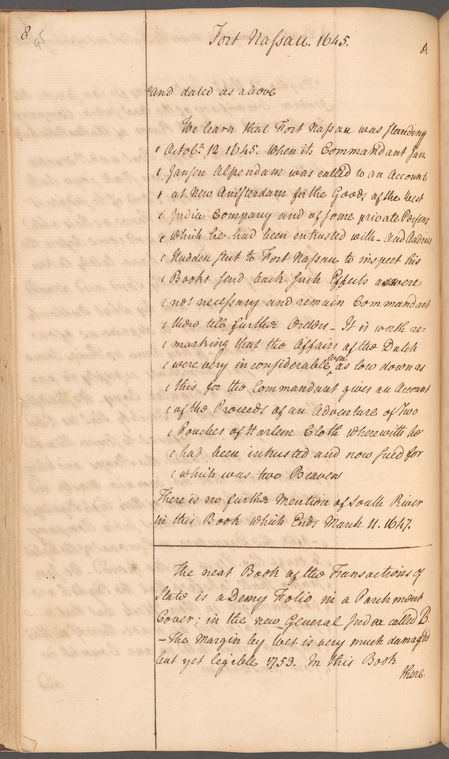 8
Fort Nassau. 1645.
A
and dated as above
We learn that Fort Nassau was standing
Octobr. 12 1645. When its Commandant Jan
Jansen Alpendam was called to an Account
at New Amsterdam for the Goods of the West
India Company and of some private Persons
Which he had been entrusted with - And Andries
Hudden sent to Fort Nassau to inspect his
Books send back such Effects as were
not necessary and remain Commandant
there till further Orders - It is worth re-
marking that the Affairs of the Dutch
were very inconsiderable even as low down as
this, for the Commandant gives an Account
of the Proceeds of an Adventure of Two
Pouches of Harlem Cloth wherewith he
had been intrusted and now sued for
which was two Beavers
There is no further Mention of South River
in this Book which Ends March 11. 1647.
The next Book of the Transactions of
State is a Demy Folio in a Parchment
Cover; in the new General Index called B
- The Margin by Wet is very much damaged
but yet legible 1753. In this Book
there